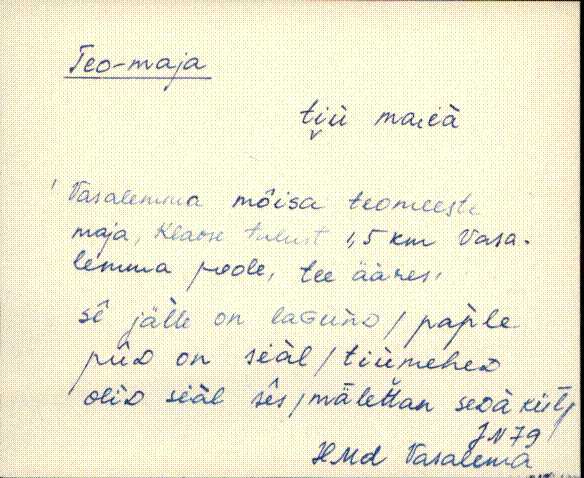 Teo-maja
tiü maiɛ̀ä
Vasalemma mõisa teomeeste
maja, Klaose talust 1,5 km Vasa-
lemma poole, tee ääres.
sê jälle on laGunD / pap̀le
pûD on siäl / tiümeheD
oliD siäl sês / mälettan seDà küt̀
JN 79
HMd Vasalema